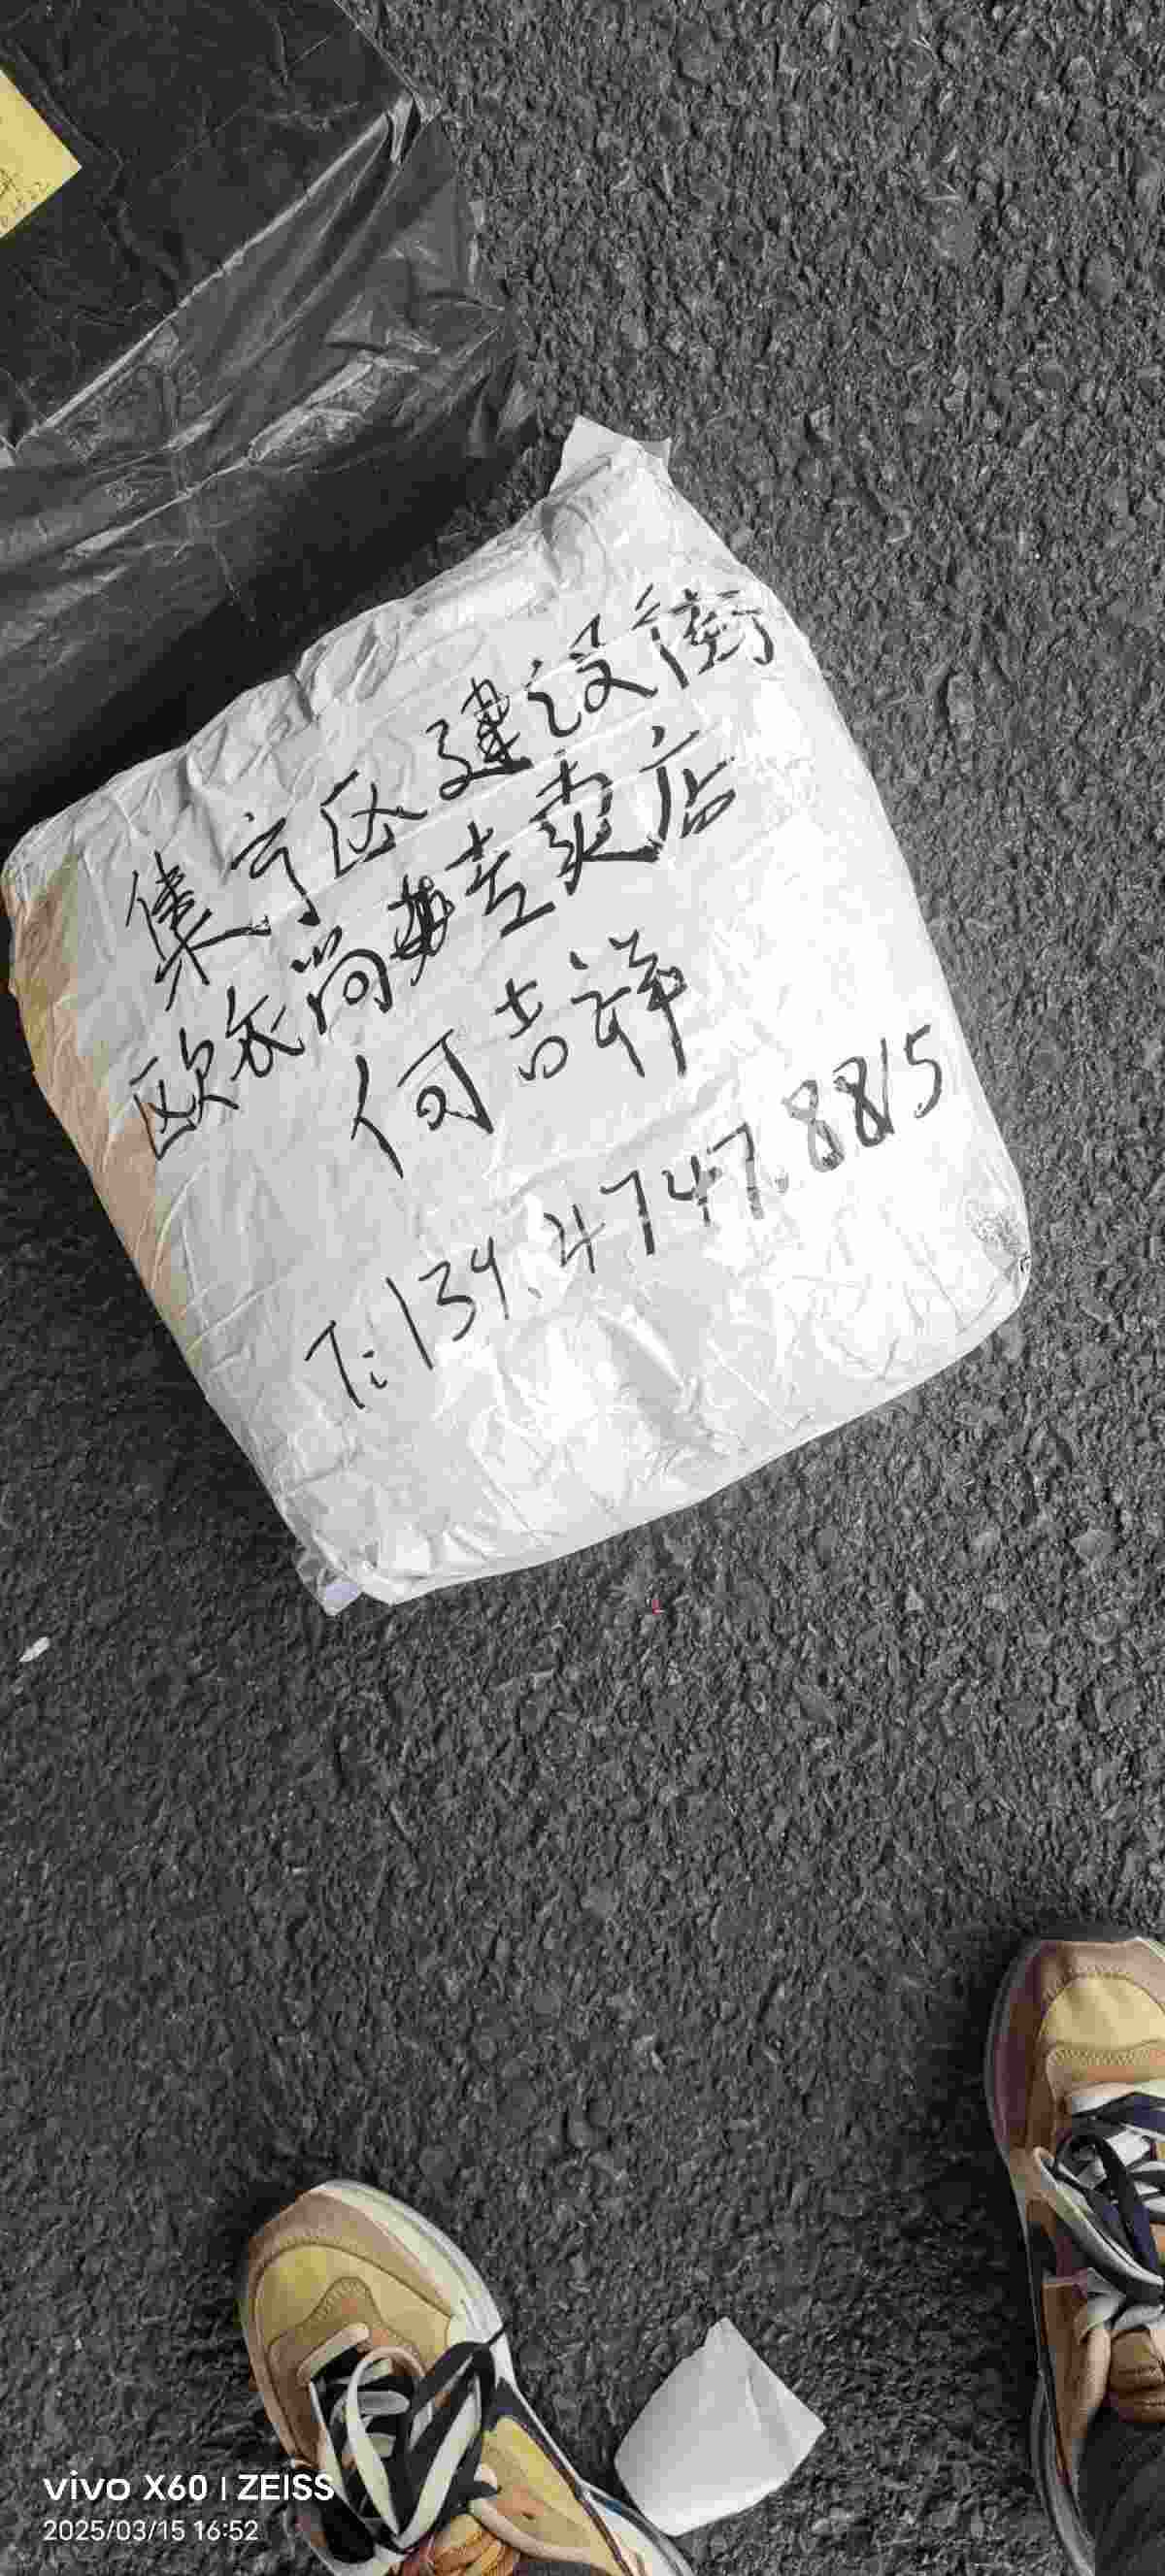 集宁区建设街
欧衣尚梦专卖店
何吉祥
T:139.4747.8815
vivo X60 | ZEISS
2025/03/15 16:52